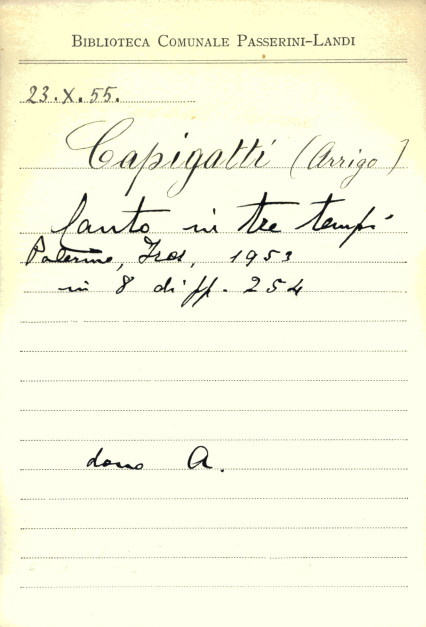 BIBLIOTECA COMUNALE PASSERINI-LANDI
23.X.55.
Capigatti (Arrigo)
in tre tempi
Palermo, Ires, 1953
in 8 di pp. 254
dono A.